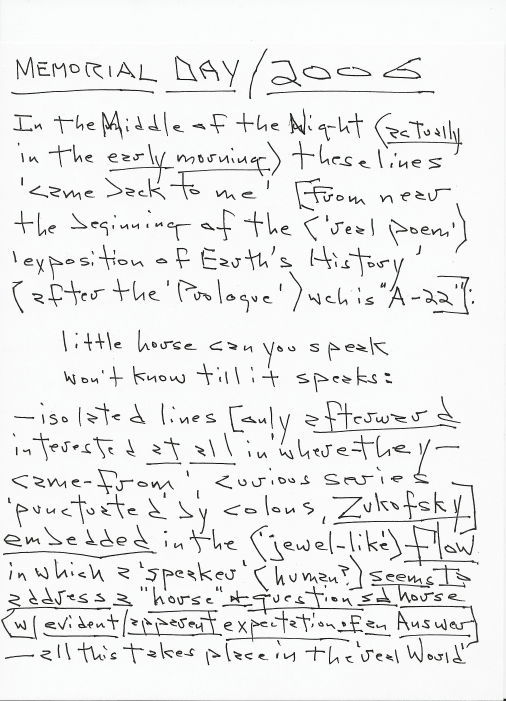 MEMORIAL DAY/2006
In the Middle of the Night (actually
in the early morning) these lines
'came back to me' [from near
the beginning of the ('real poem')
'exposition of Earth's History'
(after the 'Prologue') wch is "A-22"]:
little house can you speak
won't know till it speaks:
—isolated lines [only afterward
interested at all in 'where-they—
came-from', curious series
'punctuated' by colons, Zukofsky]
embedded in the ('jewel-like') flow
in which a 'speaker' (human?) seems to
address a "house" & question sd house
(w/ evident/apparent expectation of an Answer)
—all this takes place in the 'real World'